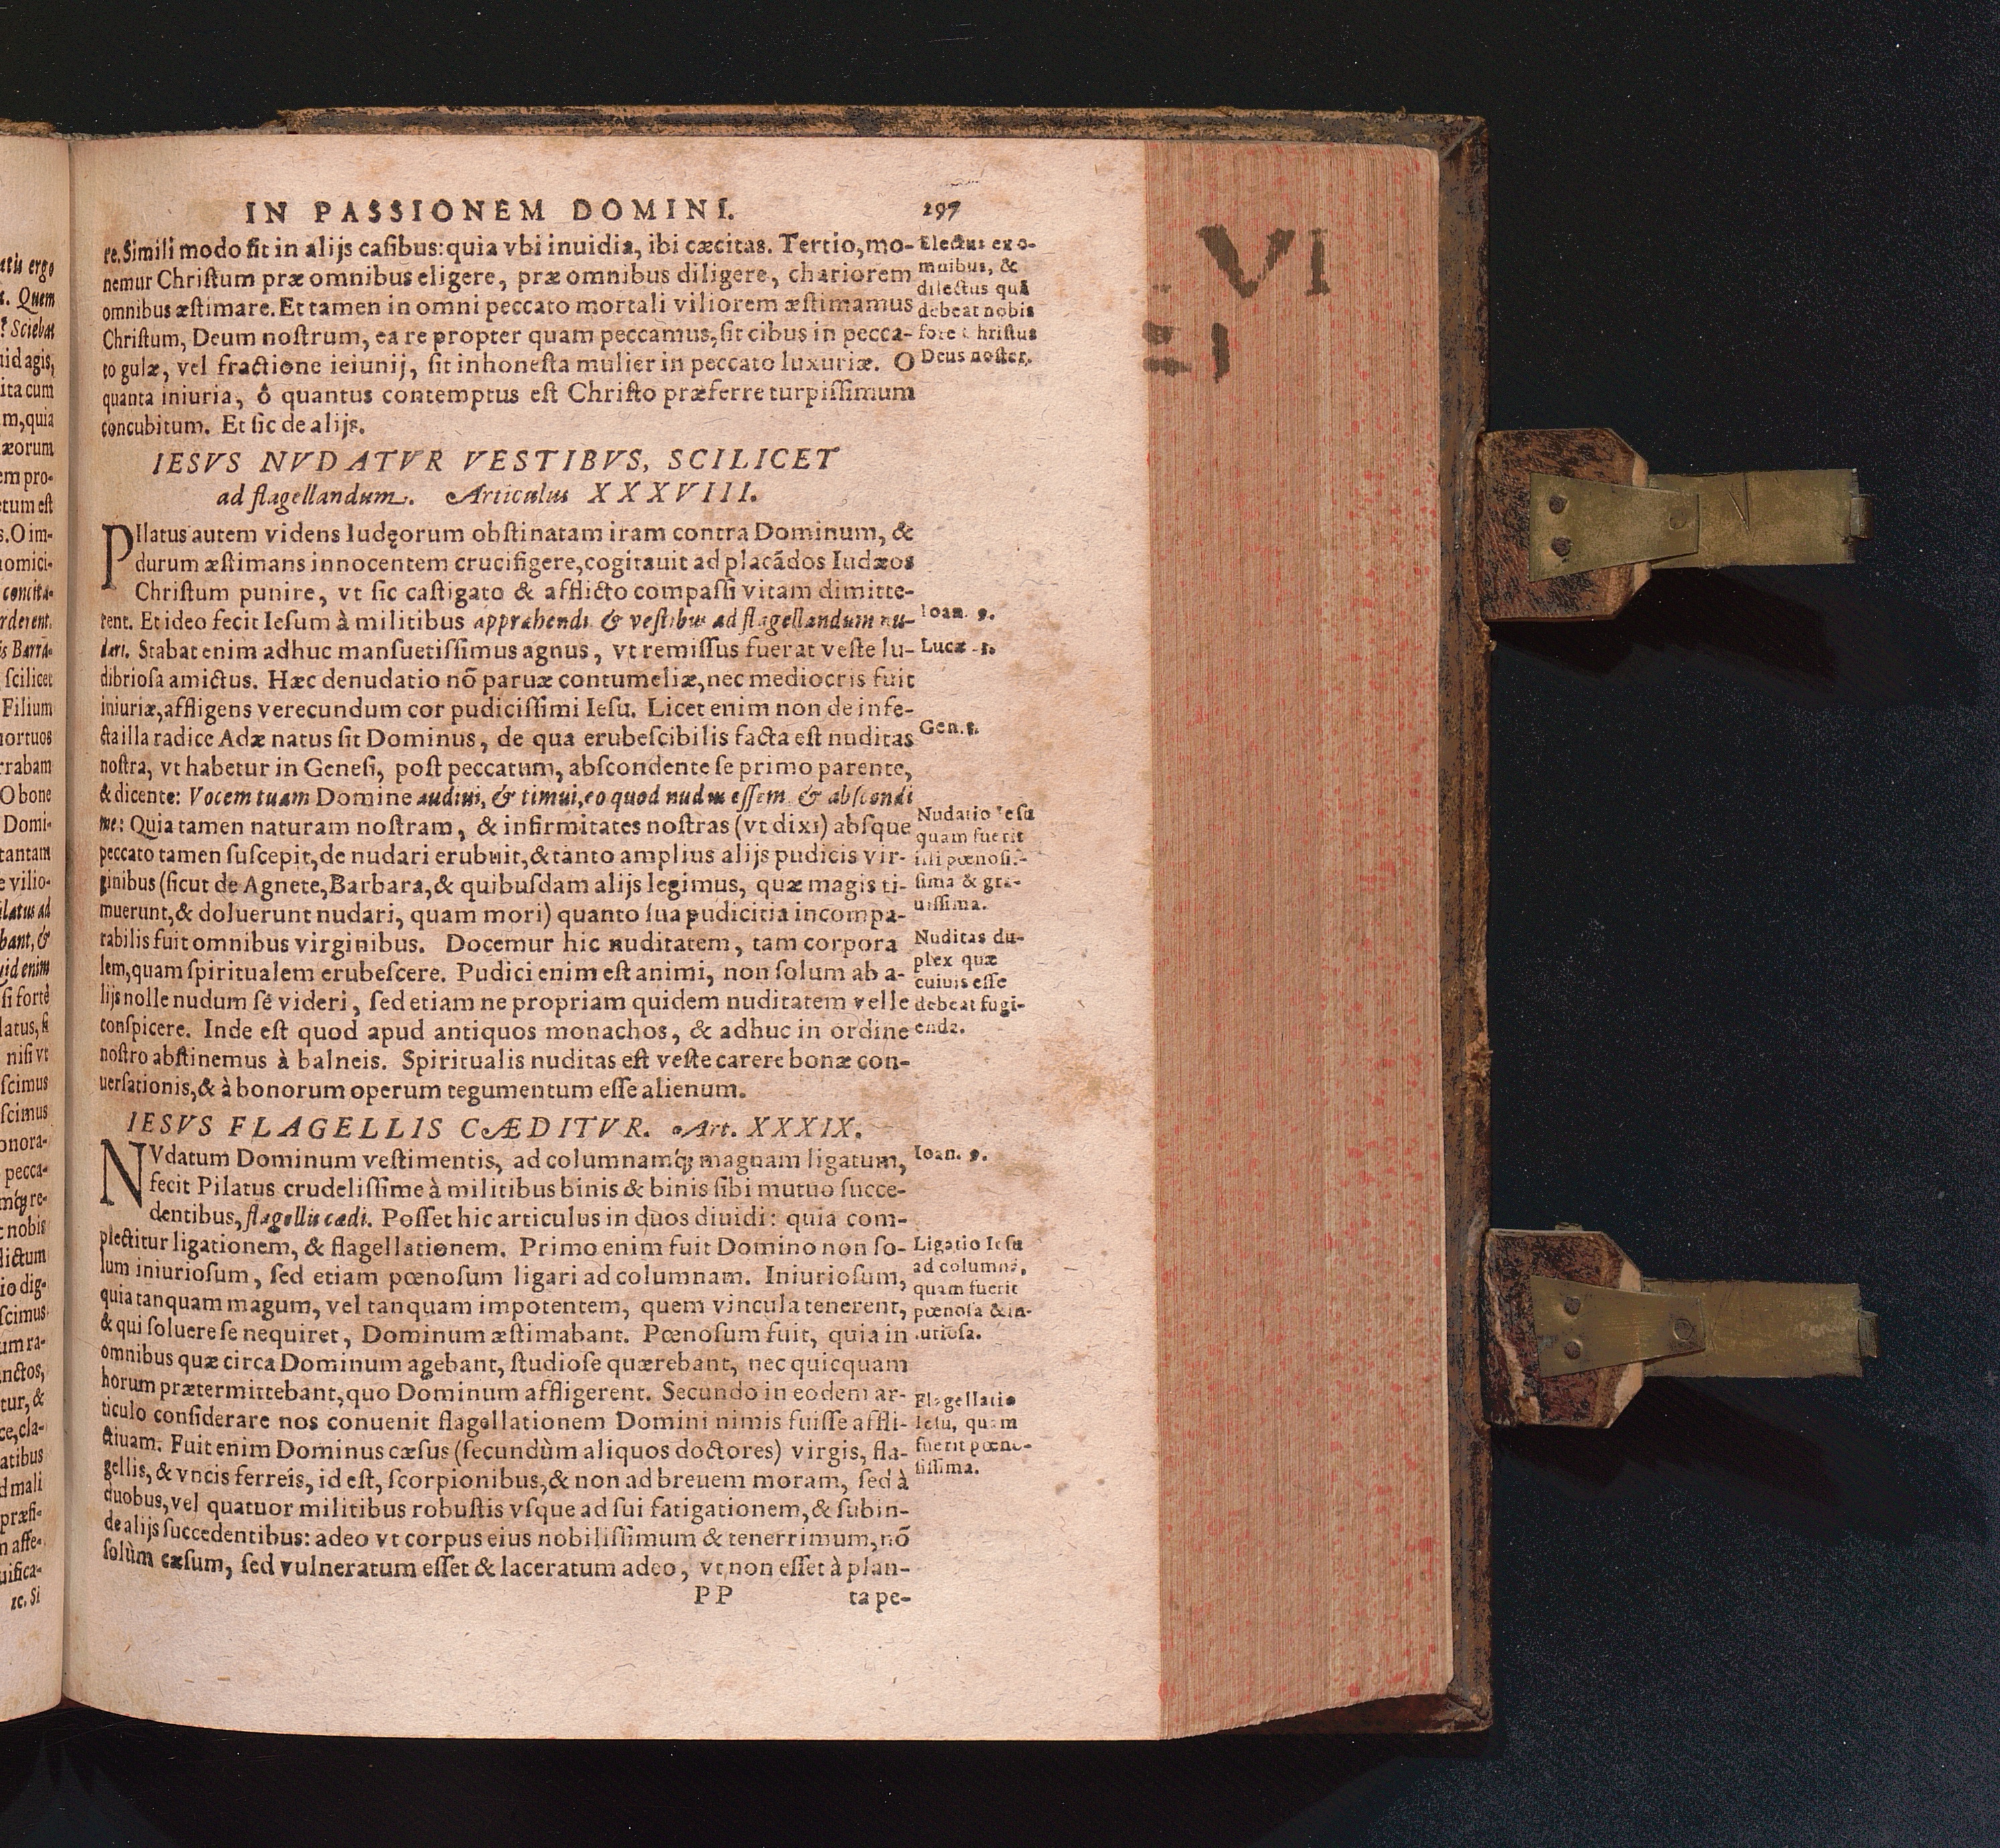 IN PASSIONEM DOMINI. 297
re. Simili modo fit in alijs caſibus: quia vbi inuidia, ibi cæcitas. Tertio, mo-
nemur Chriſtum præ omnibus eligere, præ omnibus diligere, chariorem
omnibus æſtimare. Et tamen in omni peccato mortali viliorem æſtimamus
Chriſtum, Deum noſtrum, ea re propter quam peccamus, ſit cibus in pecca-
to gulæ, vel fractione ieiunij, ſit inhoneſta mulier in peccato luxuriæ. O
quanta iniuria, ô quantus contemptus eſt Chriſto præferre turpiſſimum
concubitum. Et ſic de alijs.
Electus ex o-
mnibus, &
dilectus quã
debeat nobis
fore Chriſtus
Deus noſter.
IESVS NVDATVR VESTIBVS, SCILICET
ad flagellandum. Articulus XXXVIII.
PIlatus autem videns Iudęorum obſtinatam iram contra Dominum, &
durum æſtimans innocentem crucifigere, cogitauit ad placãdos Iudæos
Chriſtum punire, vt ſic caſtigato & afflicto compaſſi vitam dimitte-
rent. Et ideo fecit Ieſum à militibus apprehendi & veſtibus ad flagellandum nu-
dari. Stabat enim adhuc manſuetiſſimus agnus, vt remiſſus fuerat veſte lu-
dibrioſa amictus. Hæc denudatio nõ paruæ contumeliæ, nec mediocris fuit
iniuriæ, affligens verecundum cor pudiciſſimi Ieſu. Licet enim non de infe-
cta illa radice Adæ natus ſit Dominus, de qua erubeſcibilis facta eſt nuditas
noſtra, vt habetur in Geneſi, poſt peccatum, abſcondente ſe primo parente,
& dicente: Vocem tuam Domine audiui, & timui, eo quod nudus eſſem & abſcondi
me: Quia tamen naturam noſtram, & infirmitates noſtras (vt dixi) abſque
peccato tamen ſuſcepit, de nudari erubuit, & tanto amplius alijs pudicis vir-
ginibus (ſicut de Agnete, Barbara, & quibuſdam alijs legimus, quæ magis ti-
muerunt, & doluerunt nudari, quam mori) quanto ſua pudicitia incompa-
rabilis fuit omnibus virginibus. Docemur hic nuditatem, tam corpora
lem, quam ſpiritualem erubeſcere. Pudici enim eſt animi, non ſolum ab a-
lijs nolle nudum ſe videri, ſed etiam ne propriam quidem nuditatem velle
conſpicere. Inde eſt quod apud antiquos monachos, & adhuc in ordine
noſtro abſtinemus à balneis. Spiritualis nuditas eſt veſte carere bonæ con-
uerſationis, & à bonorum operum tegumentum eſſe alienum.
Ioan. 
Lucæ
Gen.
Nudatio Ieſu
quam fuerit
illi pœnoſiſ-
ſima & gra-
uiſſima.
Nuditas du-
plex quæ
cuiuis eſſe
debeat fugi-
enda.
IESVS FLAGELLIS CÆDITVR. Art. XXXIX.
NVdatum Dominum veſtimentis, ad columnamq́; magnam ligatum,
fecit Pilatus crudeliſſime à militibus binis & binis ſibi mutuo ſucce-
dentibus, flagellis cædi. Poſſet hic articulus in duos diuidi: quia com-
plectitur ligationem, & flagellationem. Primo enim fuit Domino non ſo-
lum iniurioſum, ſed etiam pœnoſum ligari ad columnam. Iniurioſum,
quia tanquam magum, vel tanquam impotentem, quem vincula tenerent,
& qui ſoluere ſe nequiret, Dominum æſtimabant. Pœnoſum fuit, quia in
omnibus quæ circa Dominum agebant, ſtudioſe quærebant, nec quicquam
horum prætermittebant, quo Dominum affligerent. Secundo in eodem ar-
ticulo conſiderare nos conuenit flagellationem Domini nimis fuiſſe affli-
ctiuam. Fuit enim Dominus cæſus (ſecundùm aliquos doctores) virgis, fla-
gellis, & vncis ferreis, id eſt, ſcorpionibus, & non ad breuem moram, ſed à
duobus, vel quatuor militibus robuſtis vſque ad ſui fatigationem, & ſubin-
de alijs ſuccedentibus: adeo vt corpus eius nobiliſſimum & tenerrimum, nõ
ſolùm cæſum, ſed vulneratum eſſet & laceratum adeo, vt non eſſet à plan-
PP ta pe-
Ioan.
Ligatio Ieſu
ad columnã,
quam fuerit
pœnoſa & in-
iurioſa.
Flagellatio
Ieſu, quam
fuerit pœno-
ſiſſima.
VI